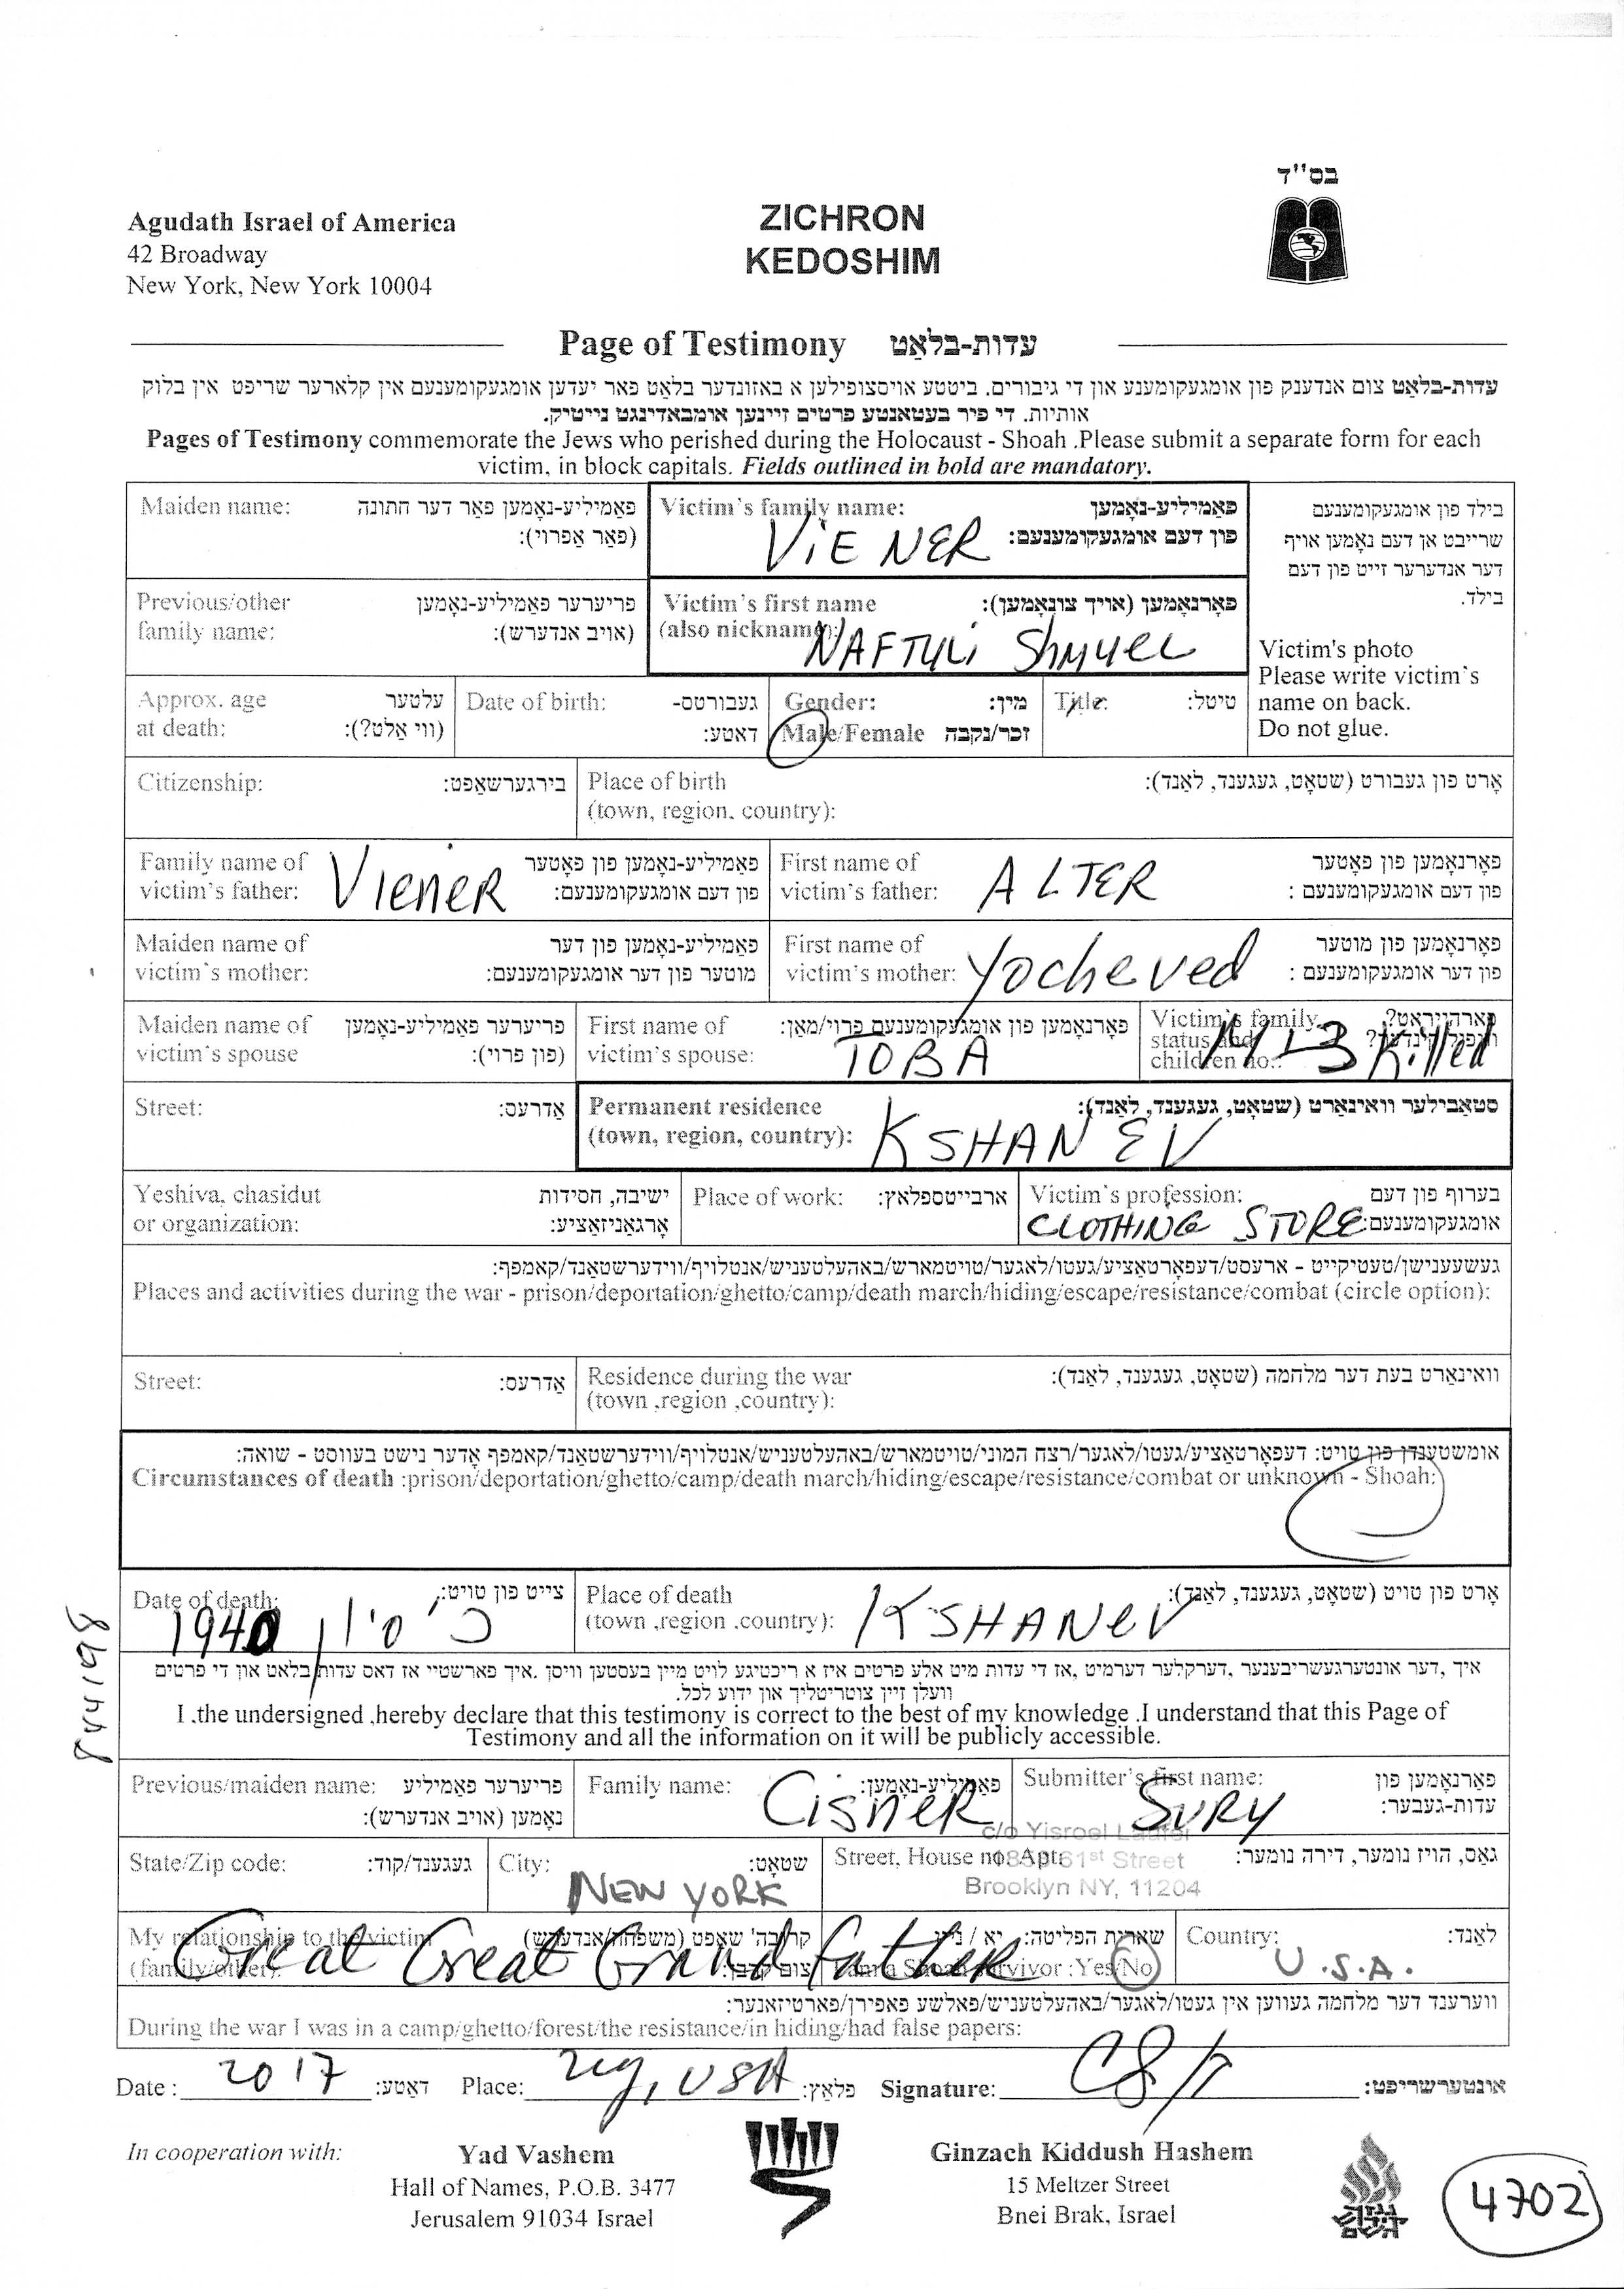 בס"ד
Agudath Israel of America
42 Broadway
New York, New York 10004
ZICHRON
KEDOSHIM
Page of Testimony עדות-בלאַט
עדות-בלאַט צום אנדענק פון אומגעקומענע און די גיבורים. ביטטע אויסצופילען א באזונדער בלאַט פאר יעדען אומגעקומענעם אין קלארער שריפט אין בלוק
אותיות. די פיר בעטאנטע פרטים זיינען אומבאדינגט נייטיק.
Pages of Testimony commemorate the Jews who perished during the Holocaust - Shoah .Please submit a separate form for each
victim, in block capitals. Fields outlined in bold are mandatory.
Maiden name: פאַמיליע-נאָמען פאר דער חתונה
(פאַר אַפרוי):
Victim's family name: פאַמיליע-נאָמען
פון דעם אומגעקומענעם:
ViENER
בילד פון אומגעקומענעם
שרייבט אן דעם נאָמען אויף
דער אנדערער זייט פון דעם
בילד.
Victim's photo
Please write victim's
name on back.
Do not glue.
Previous/other פריערער פאַמיליע-נאָמען
family name: (אויב אנדערש):
Victim's first name פאָרנאָמען (אויך צונאָמען):
(also nickname):
NAFTULi ShMUEL
Approx. age עלטער
at death: (ווי אַלט?):
Date of birth: געבורטס-
דאטע:
Gender: מין:
Male/Female זכר/נקבה
Title: טיטל:
Citizenship: בירגערשאַפט:
Place of birth אָרט פון געבורט (שטאָט, געגענד, לאַנד):
(town, region, country):
Family name of פאַמיליע-נאָמען פון פאָטער
victim's father: פון דעם אומגעקומענעם:
VIENER
First name of פאָרנאָמען פון פאָטער
victim's father: פון דעם אומגעקומענעם :
ALTER
Maiden name of פאַמיליע-נאָמען פון דער
victim's mother: מוטער פון דער אומגעקומענעם:
First name of פאָרנאָמען פון מוטער
victim's mother: פון דער אומגעקומענעם :
Yocheved
Maiden name of פריערער פאַמיליע-נאָמען
victim's spouse (פון פרוי):
First name of פאָרנאָמען פון אומגעקומענעם פרוי/מאַן:
victim's spouse:
TOBA
Victim's family פארהייראַט?
status and
children no.:
3 Killed
Street: אַדרעס:
Permanent residence סטאַבילער וואוינאָרט (שטאָט, געגענד, לאַנד):
(town, region, country):
KSHANEV
Yeshiva, chasidut ישיבה, חסידות
or organization: אָרגאַניזאַציע:
Place of work: ארבייטספלאַץ:
Victim's profession: בערוף פון דעם
אומגעקומענעם:
CLOTHING STORE
געשעענישן/טעטיקייט - ארעסט/דעפאָרטאַציע/געטו/לאגער/טויטמארש/באהעלטעניש/אנטלויף/ווידערשטאַנד/קאמפף:
Places and activities during the war - prison/deportation/ghetto/camp/death march/hiding/escape/resistance/combat (circle option):
Street: אַדרעס:
Residence during the war וואוינאָרט בעת דער מלחמה (שטאָט, געגענד, לאַנד):
(town ,region ,country):
אומשטענדן פון טויט: דעפאָרטאַציע/געטו/לאגער/רצח המוני/טויטמארש/באהעלטעניש/אנטלויף/ווידערשטאַנד/קאמפף אָדער נישט בעווסט - שואה:
Circumstances of death :prison/deportation/ghetto/camp/death march/hiding/escape/resistance/combat or unknown - Shoah:
Date of death: צייט פון טויט:
1940 כ' סיון
Place of death אָרט פון טויט (שטאָט, געגענד, לאַנד):
(town ,region ,country):
KSHANEV
844198
איך ,דער אונטערגעשריבענער ,דערקלער דערמיט ,אז די עדות מיט אלע פרטים איז א ריכטיגע לויט מיין בעסטען וויסן .איך פארשטיי אז דאס עדות בלאט און די פרטים
וועלן זיין צוטריטליך און ידוע לכל.
I ,the undersigned ,hereby declare that this testimony is correct to the best of my knowledge .I understand that this Page of
Testimony and all the information on it will be publicly accessible.
Previous/maiden name: פריערער פאַמיליע
נאָמען (אויב אנדערש):
Family name: פאַמיליע-נאָמען:
CisnER
Submitter's first name: פאָרנאָמען פון
עדות-געבער:
SURY
State/Zip code: געגענד/קוד:
City: שטאָט:
NEW YORK
Street, House no. Apt: גאַס, הויז נומער, דירה נומער:
c/o Yisroel Laufer
61st Street
Brooklyn NY, 11204
My relationship to the victim
(family/other):
Great Great Grandfather
שארית הפליטה: יא /
I am a Shoah survivor :Yes/No
Country: לאַנד:
U.S.A.
ווערענד דער מלחמה געווען אין געטו/לאגער/באהעלטעניש/פאלשע פאפירן/פארטיזאנער:
During the war I was in a camp/ghetto/forest/the resistance/in hiding/had false papers:
Date : 2017 דאַטע: Place: ny, USA פלאַץ: Signature: אונטערשריפט:
In cooperation with:
Yad Vashem
Hall of Names, P.O.B. 3477
Jerusalem 91034 Israel
Ginzach Kiddush Hashem
15 Meltzer Street
Bnei Brak, Israel
4702